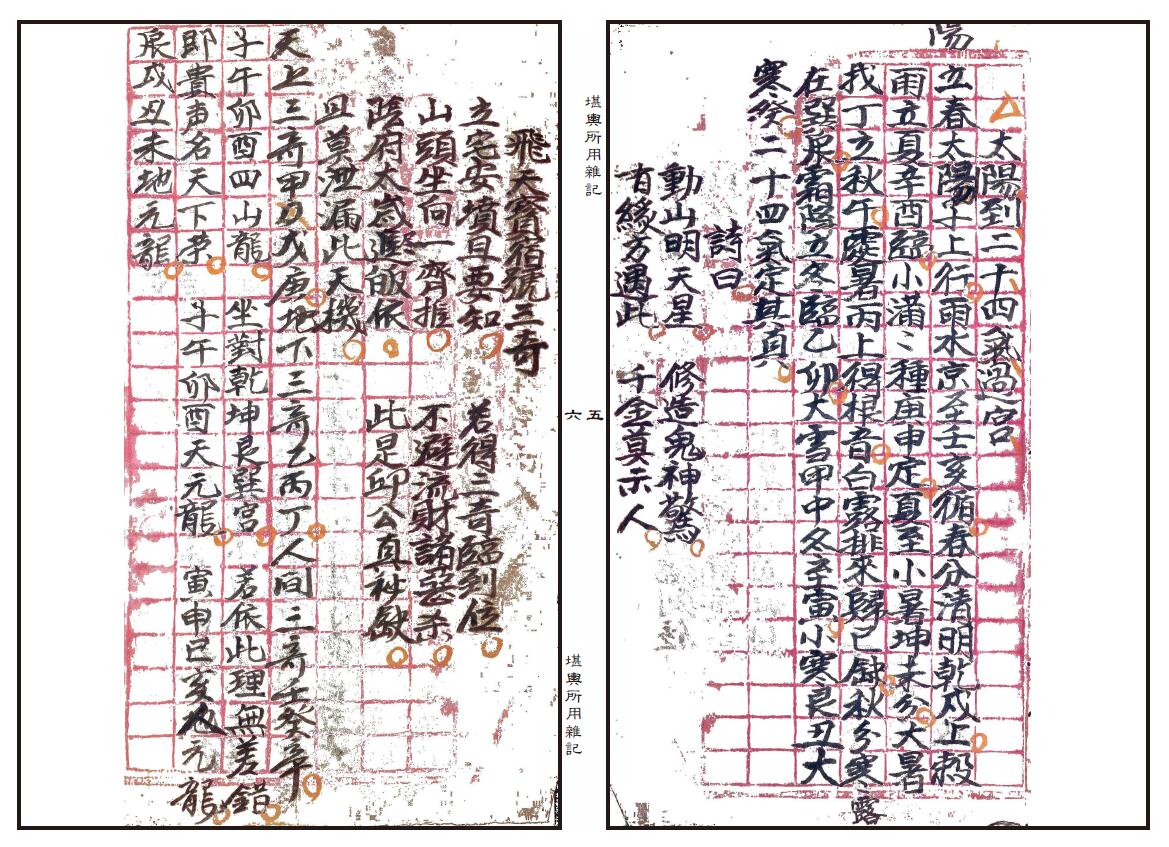 陽
太陽到二十四氣過宮
立春太陽子上行雨水京至壬亥循春分清明乾戌上穀
雨立夏辛酉臨小滿〻種庚申定夏至小暑坤未分大暑
我丁立秋午處暑丙上得根音白露排來歸巳獄秋分寒〻露
在巽辰霜降立冬臨乙卯大雪甲中冬至寅小寒艮丑大
寒癸二十四氣定其真
詩曰
動山明天星 修造鬼神驚
有緣方遇此 千金莫示人
堪輿所用雜記
五
六
堪輿所用雜記
飛天寶宿號三奇
立宅安墳旦要知 若得三奇臨到位
山頭坐向一齊推 不避流財諸惡杀
陰府太歲迯皈依 此是卭公真祕
且莫泄漏此天機
天上三奇甲戊庚地下三奇乙丙丁人间三奇壬癸辛
子午卯酉四山龍 坐對乾坤艮巽宮 若依此理無差錯
即書声名天下 子午卯酉天元龍 寅申巳亥人元龍
辰戌丑未地元龍